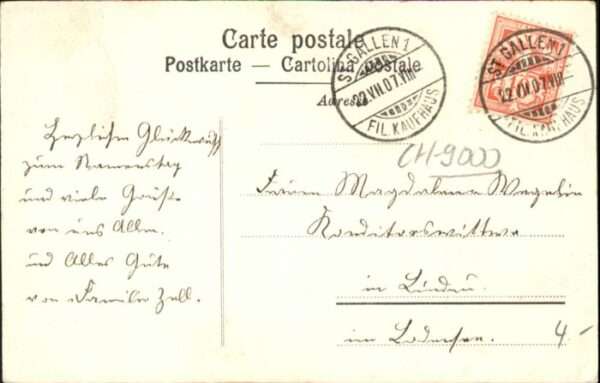 Carte postale.
Postkarte — Cartolina postale
Adresse
ST. GALLEN 1
22.VII.07.VIII
FIL. KAUFHAUS
ST. GALLEN 1
22.VII.07.VIII
FIL. KAUFHAUS
CH-9000
Herzlichen Glückwunsch
zum Namenstag
und viele Grüße
von uns Allen.
und Alles Gute
von Familie Zoll.
Frauen Magdalena Wegelin
Konditorswittwe
in Lindau.
im Bodensee.
4.-